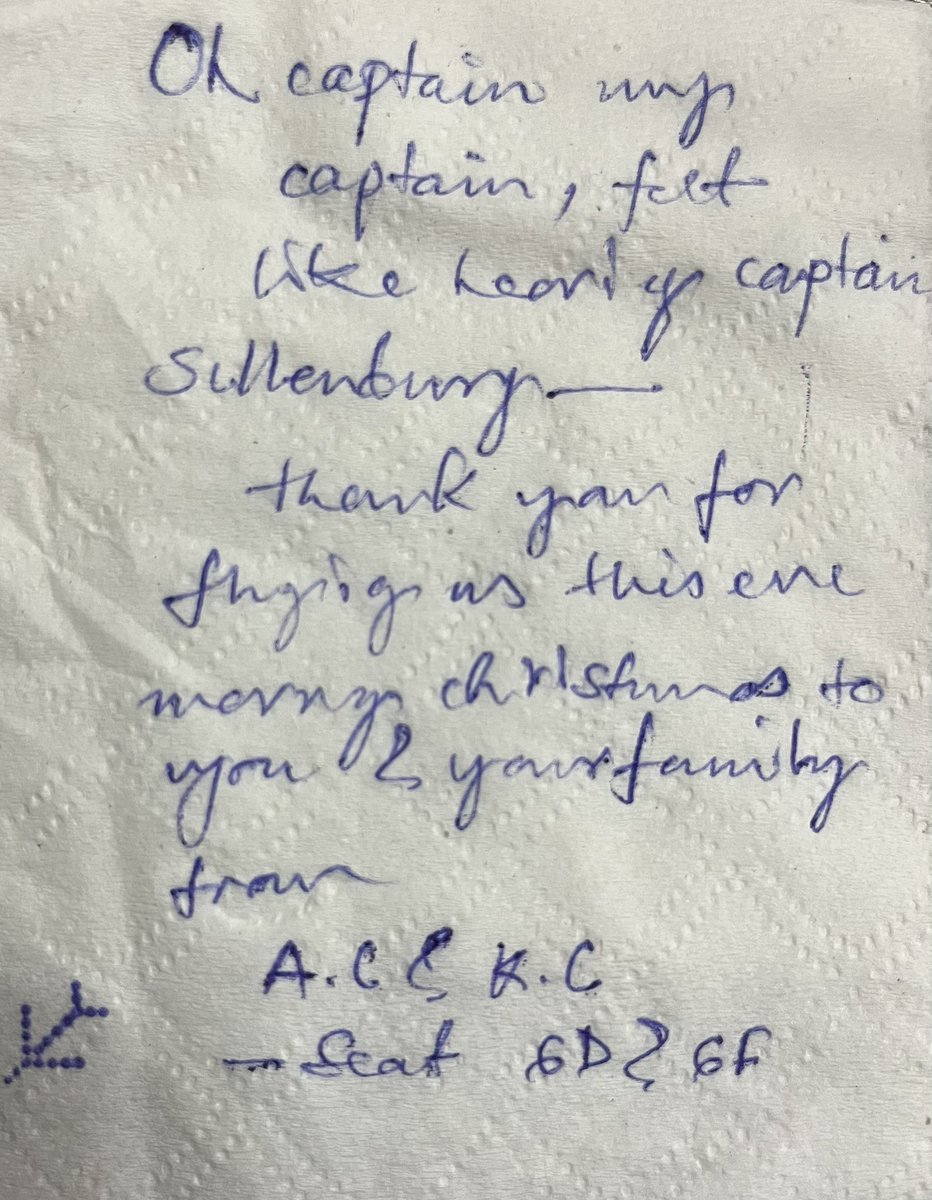 Oh captain my
captain, felt
like hearing captain
Sullenburg —
thank you for
flying us this eve
merry christmas to
you & your family
from
A.C & K.C
— Seat 6D & 6F